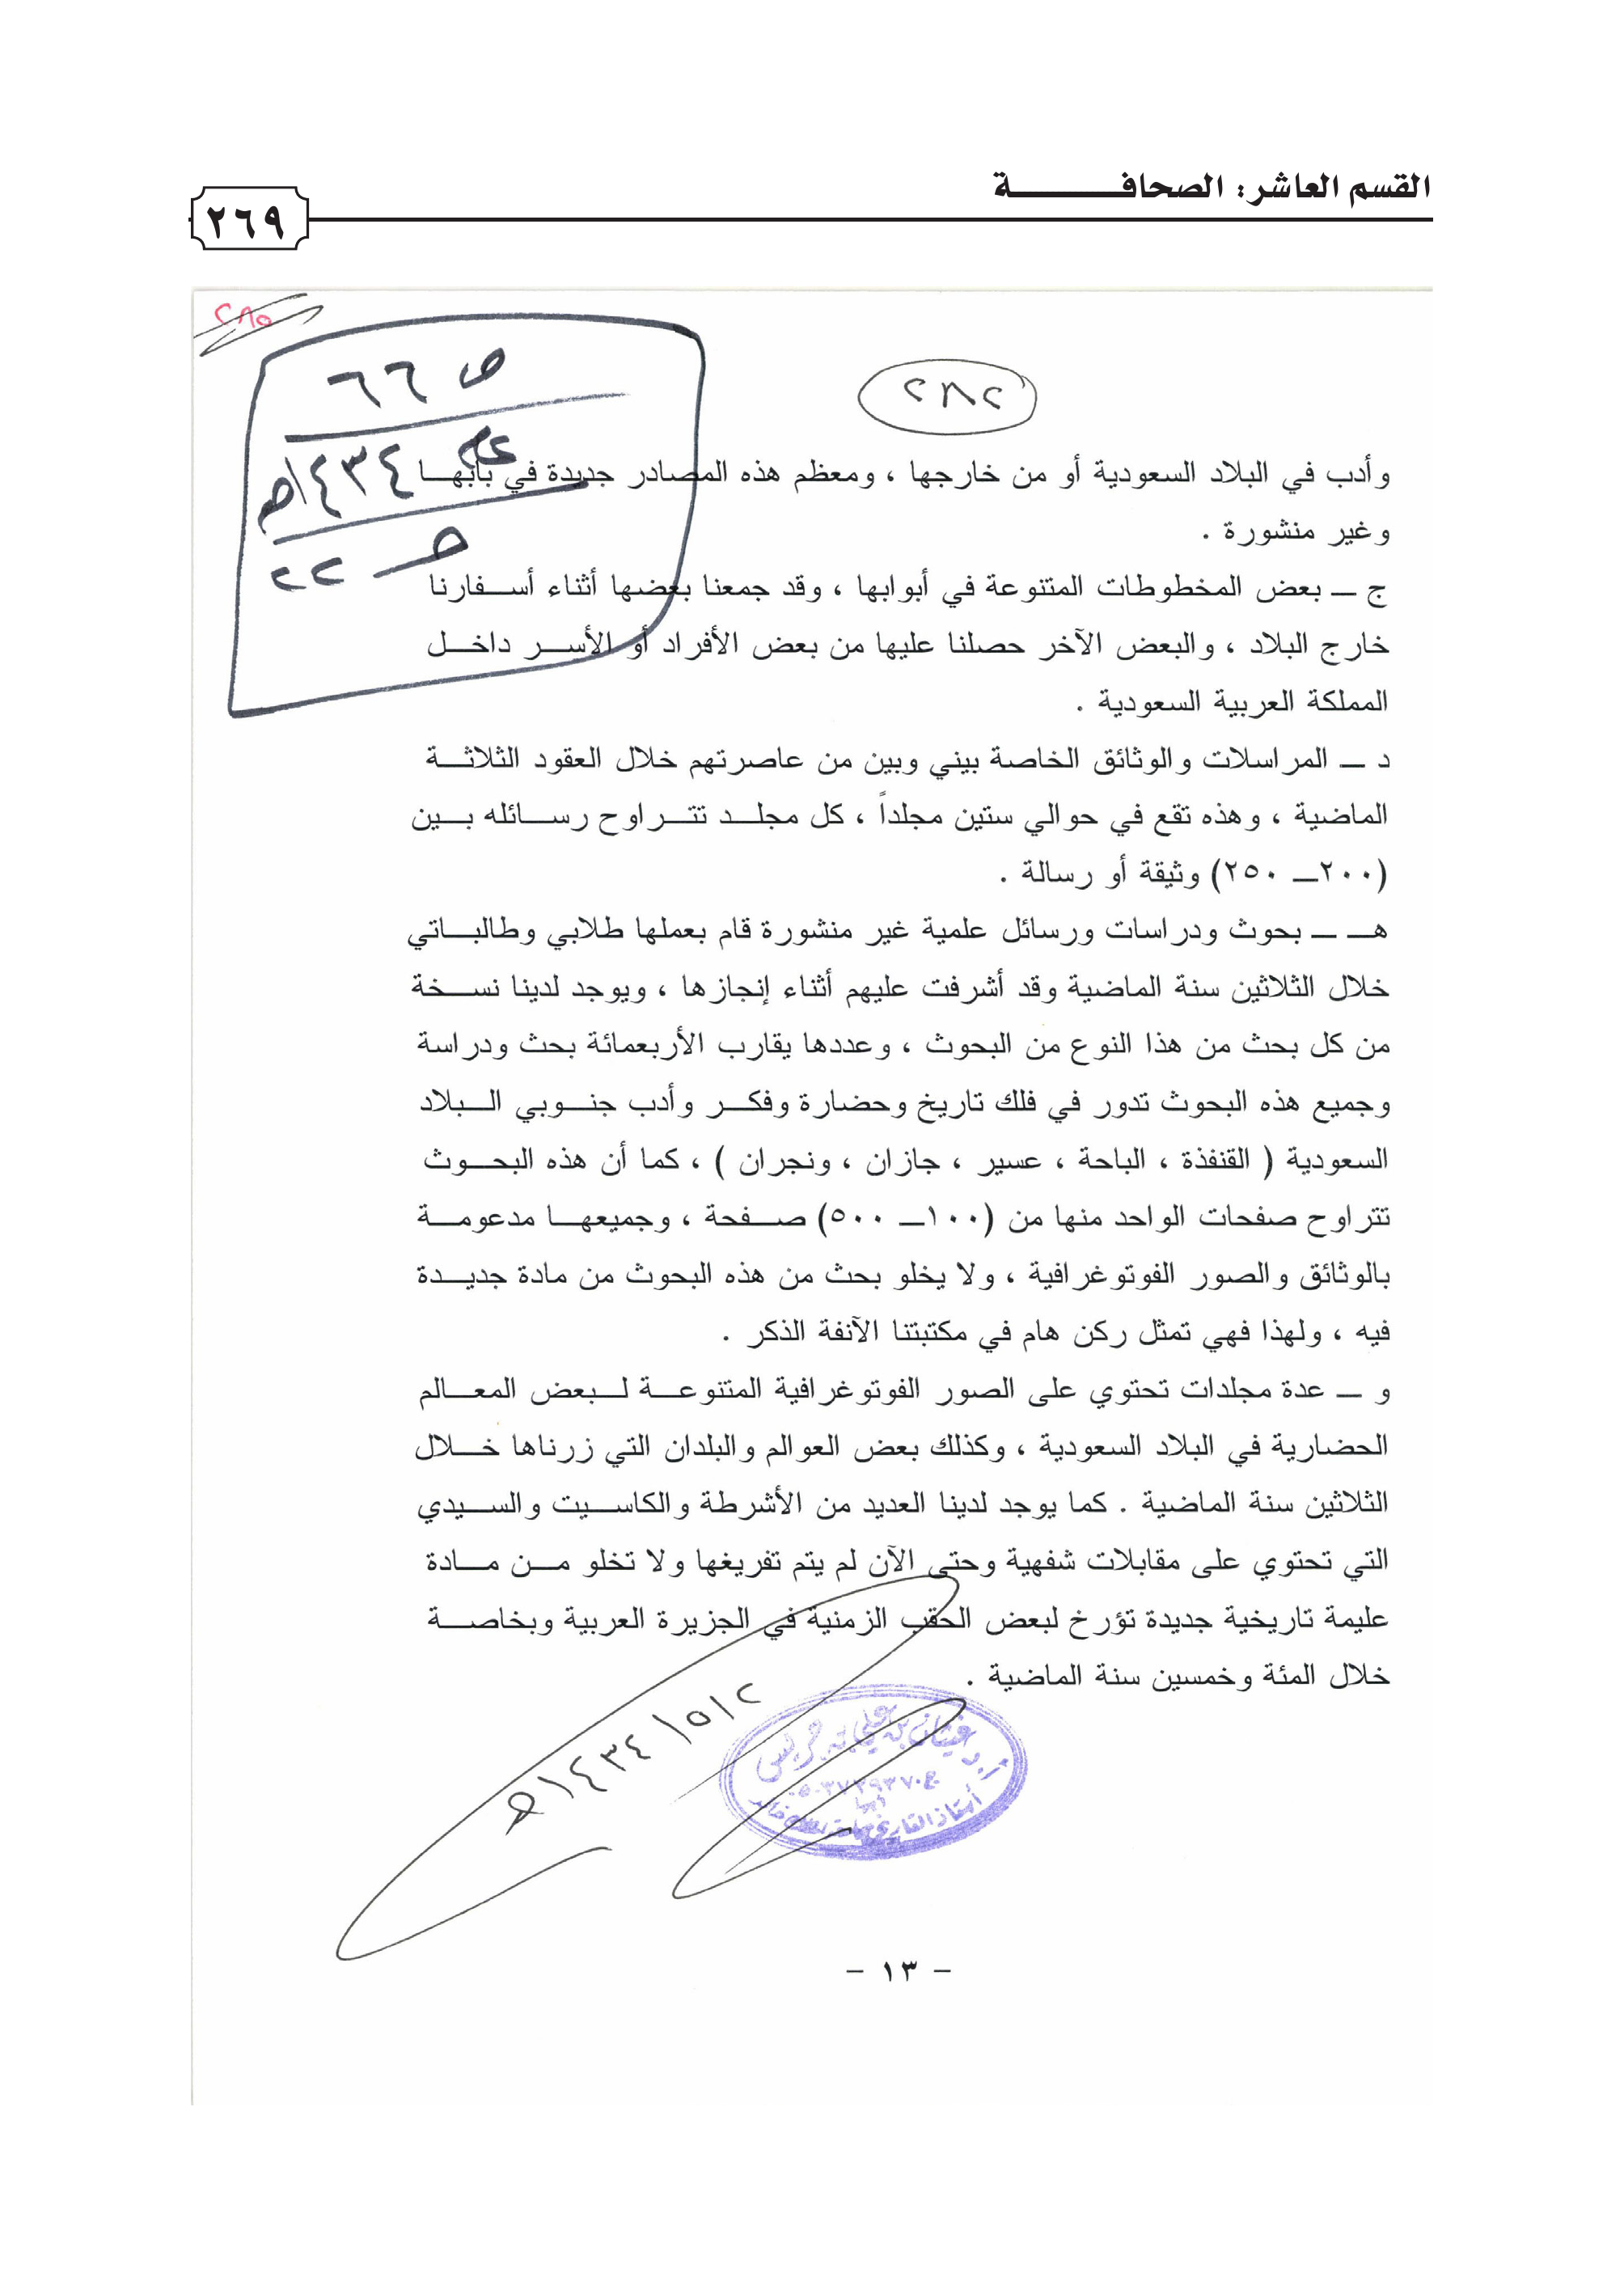 القسم العاشر: الصحافة
٢٦٩
٢٨٥
ص ٦٦
عام ١٤٣٤هـ
حـ ٢٢
٢٨٢
وأدب في البلاد السعودية أو من خارجها ، ومعظم هذه المصادر جديدة في بابها
وغير منشورة .
ج ــ بعض المخطوطات المتنوعة في أبوابها ، وقد جمعنا بعضها أثناء أسفارنا
خارج البلاد ، والبعض الآخر حصلنا عليها من بعض الأفراد أو الأسر داخل
المملكة العربية السعودية .
د ــ المراسلات والوثائق الخاصة بيني وبين من عاصرتهم خلال العقود الثلاثة
الماضية ، وهذه تقع في حوالي ستين مجلداً ، كل مجلد تتراوح رسائله بين
(٢٠٠ــ ٢٥٠) وثيقة أو رسالة .
هـ ــ بحوث ودراسات ورسائل علمية غير منشورة قام بعملها طلابي وطالباتي
خلال الثلاثين سنة الماضية وقد أشرفت عليهم أثناء إنجازها ، ويوجد لدينا نسخة
من كل بحث من هذا النوع من البحوث ، وعددها يقارب الأربعمائة بحث ودراسة
وجميع هذه البحوث تدور في فلك تاريخ وحضارة وفكر وأدب جنوبي البلاد
السعودية ( القنفذة ، الباحة ، عسير ، جازان ، ونجران ) ، كما أن هذه البحوث
تتراوح صفحات الواحد منها من (١٠٠ــ ٥٠٠) صفحة ، وجميعها مدعومة
بالوثائق والصور الفوتوغرافية ، ولا يخلو بحث من هذه البحوث من مادة جديدة
فيه ، ولهذا فهي تمثل ركن هام في مكتبتنا الآنفة الذكر .
و ــ عدة مجلدات تحتوي على الصور الفوتوغرافية المتنوعة لبعض المعالم
الحضارية في البلاد السعودية ، وكذلك بعض العوالم والبلدان التي زرناها خلال
الثلاثين سنة الماضية . كما يوجد لدينا العديد من الأشرطة والكاسيت والسيدي
التي تحتوي على مقابلات شفهية وحتى الآن لم يتم تفريغها ولا تخلو من مادة
عليمة تاريخية جديدة تؤرخ لبعض الحقب الزمنية في الجزيرة العربية وبخاصة
خلال المئة وخمسين سنة الماضية .
٢/٥/١٤٣٤هـ
أ.د غيثان بن علي بن جريس
أستاذ التاريخ بجامعة الملك خالد
- ١٣ -